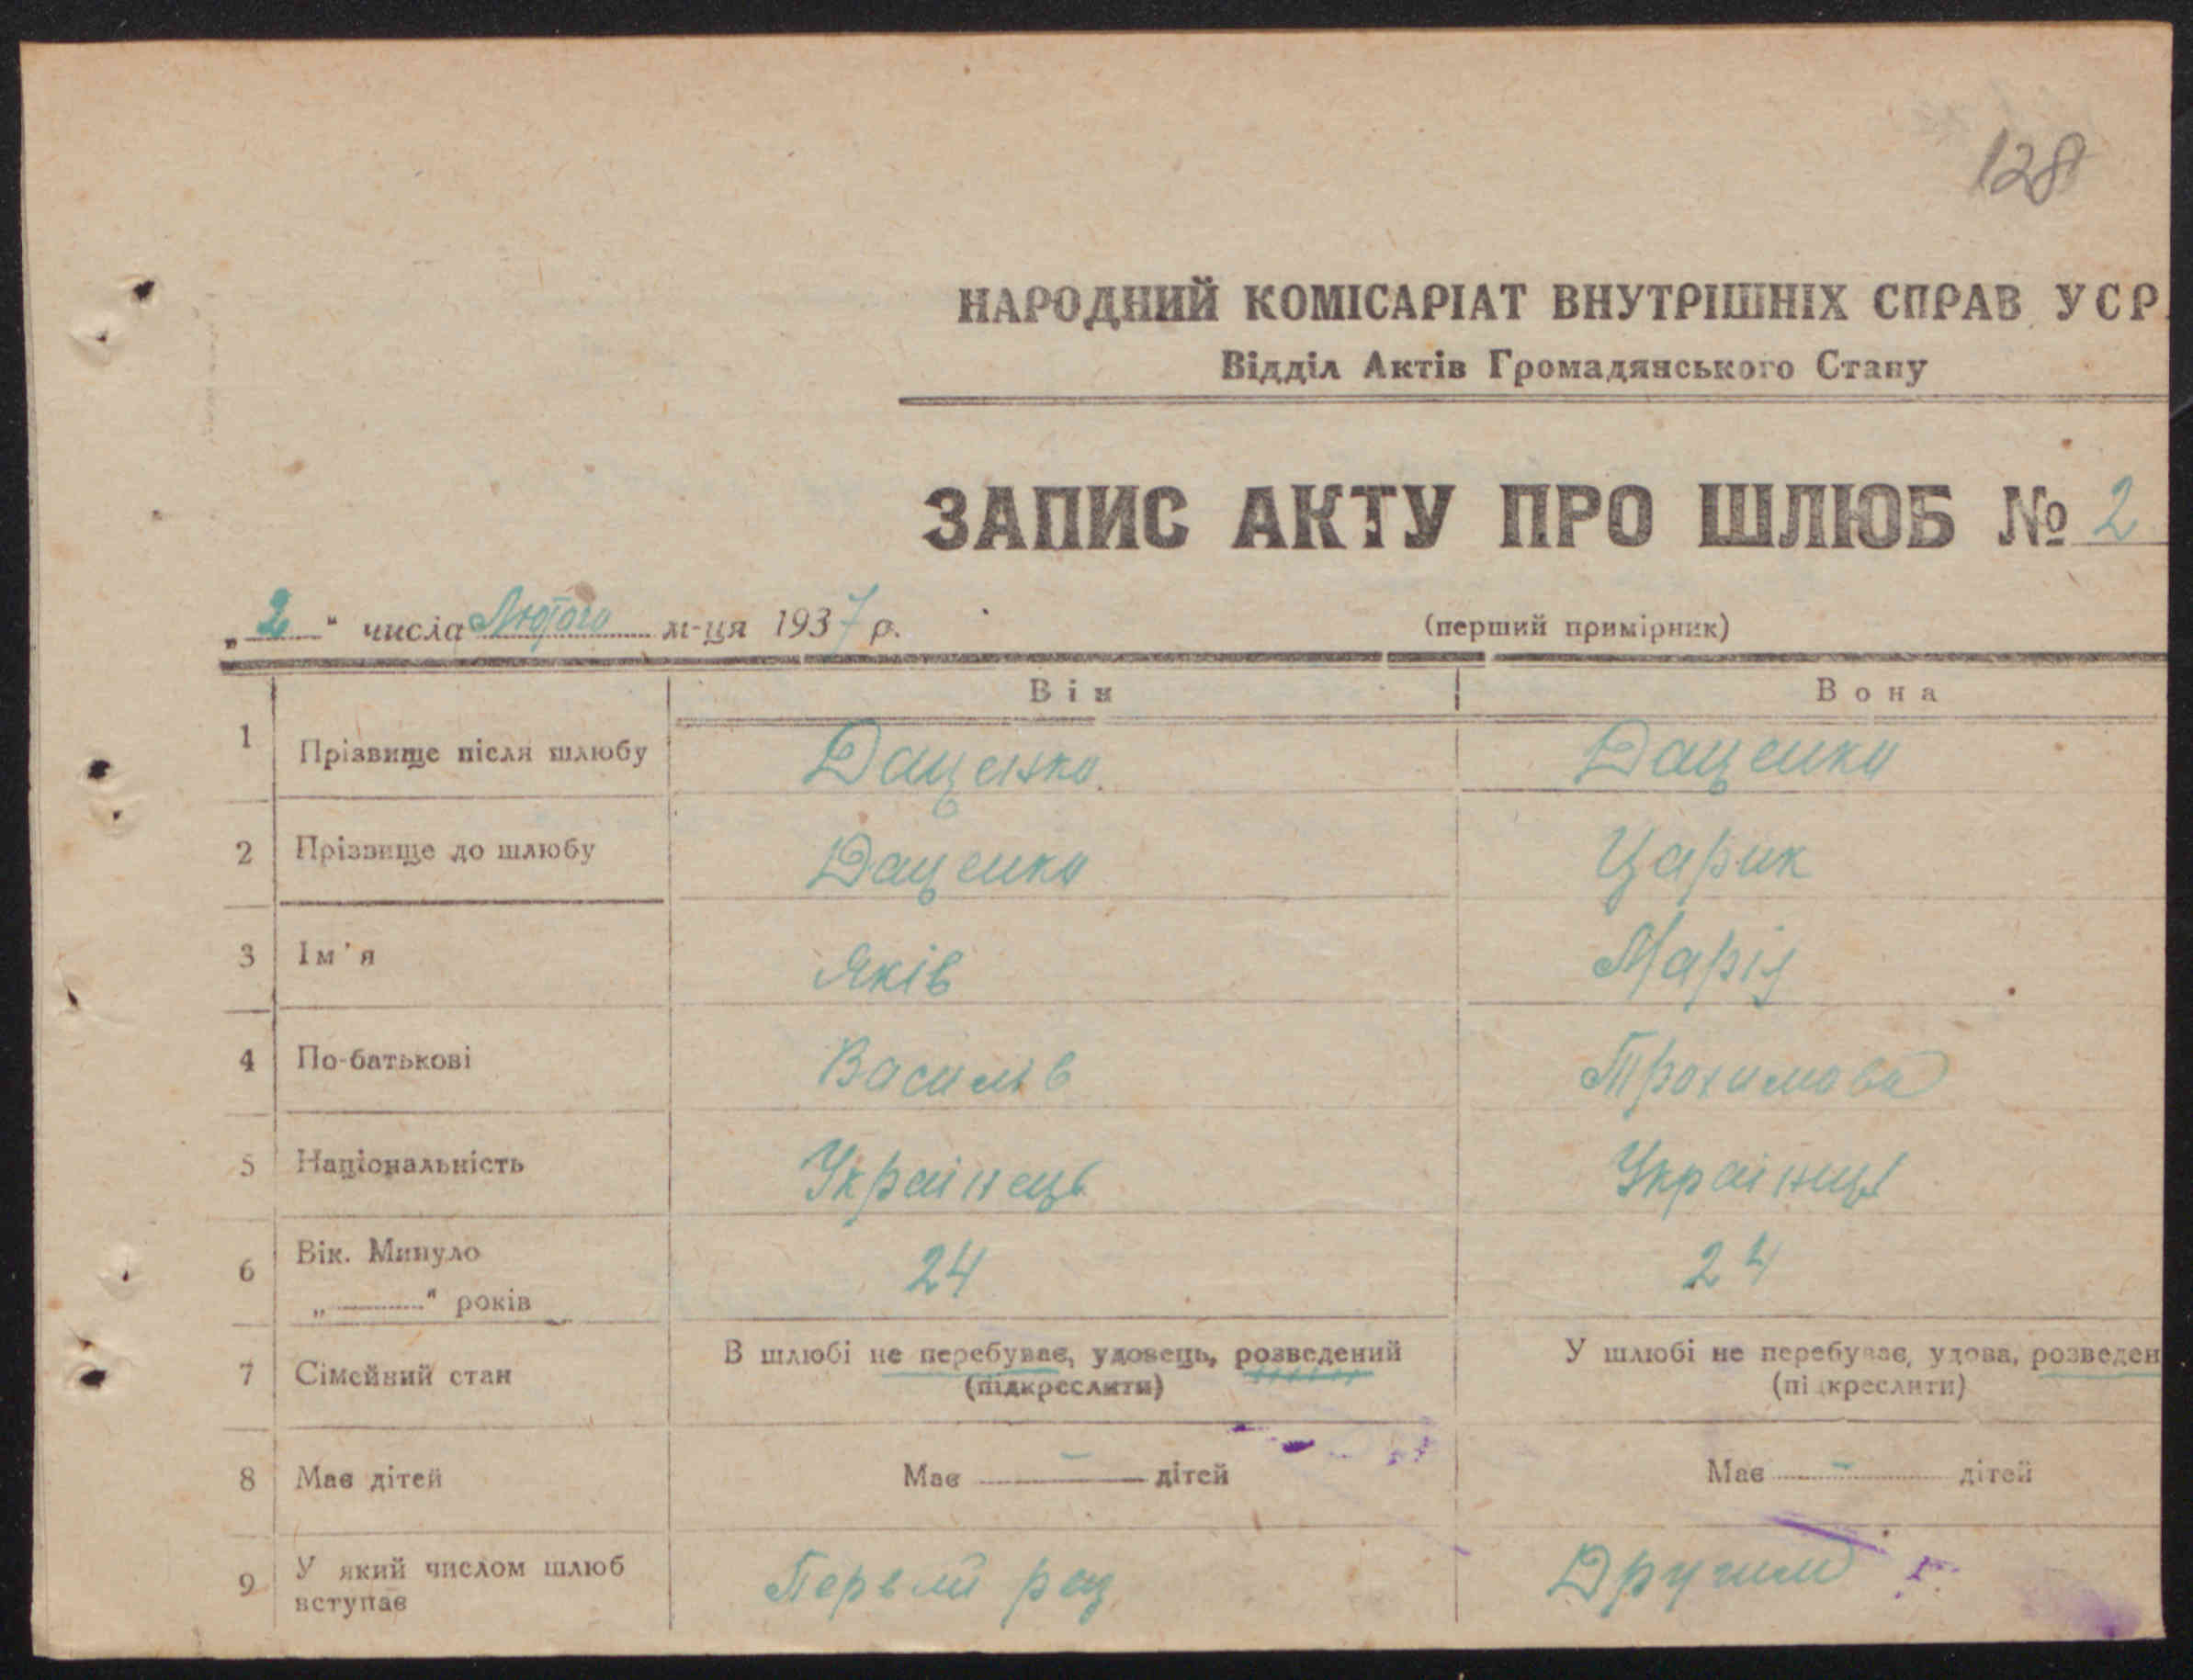 128
НАРОДНИЙ КОМІСАРІАТ ВНУТРІШНІХ СПРАВ УСР
Відділ Актів Громадянського Стану
ЗАПИС АКТУ ПРО ШЛЮБ № 2
„2" числа Лютого м-ця 1937 р. (перший примірник)
Він Вона
1 Прізвище після шлюбу Даценко Даценко
2 Прізвище до шлюбу Даценко Царик
3 Ім'я Яків Марія
4 По-батькові Василів Трохимова
5 Національність Украінець Украінця
6 Вік. Минуло 24 24
„———" років
7 Сімейний стан В шлюбі не перебуває, удовець, розведений У шлюбі не перебуває, удова, розведен
(підкреслити) (підкреслити)
8 Має дітей Має — дітей Має — дітей
9 У який числом шлюб Первий раз Другий
вступає